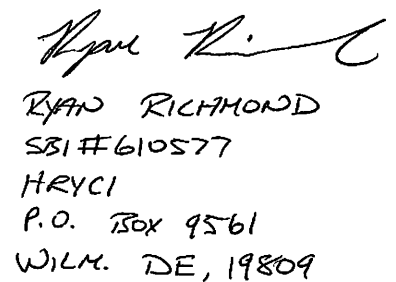 Ryan Ri
RYAN RICHMOND
SBI#610577
HRYCI
P.O. BOX 9561
WILM. DE, 19809